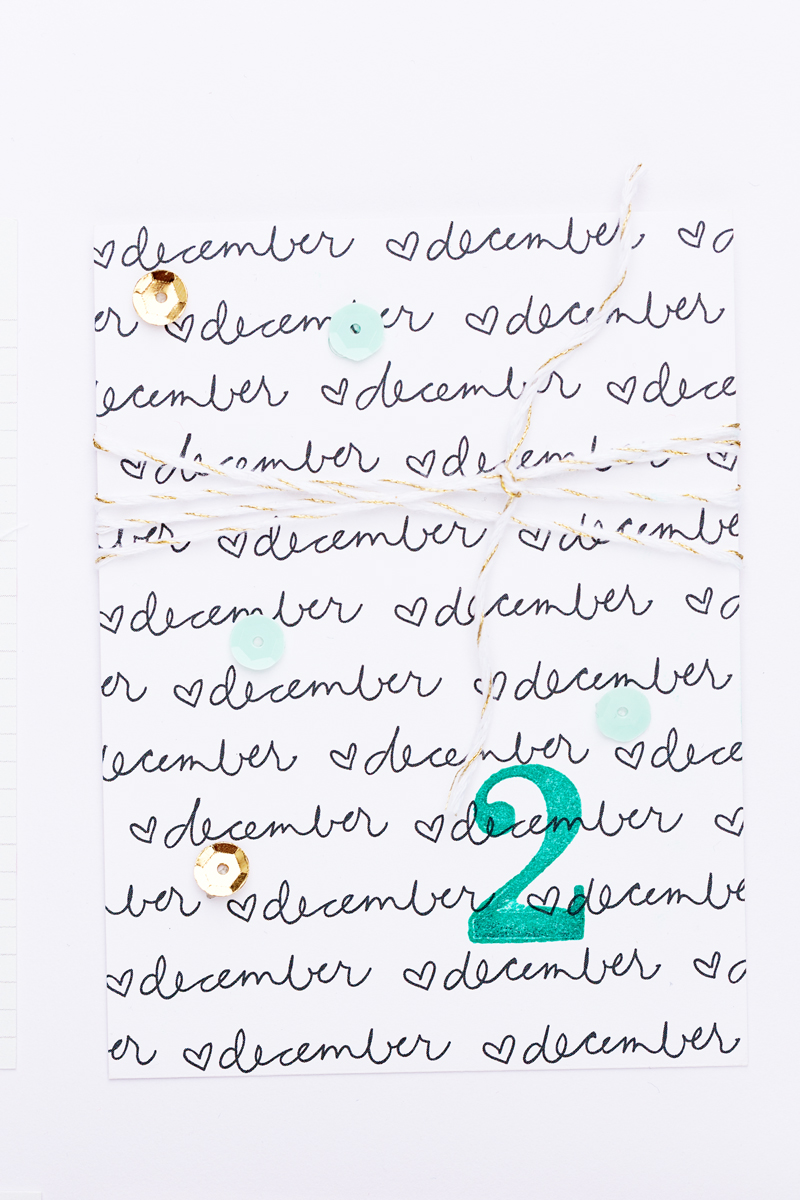 ♡december ♡december ♡d
er ♡december ♡december
ecember ♡december ♡dece
♡december ♡december ♡
ber ♡december ♡decembe
♡december ♡december ♡d
er ♡december ♡december
ecember ♡december ♡dece
♡december ♡december ♡
2
ber ♡december ♡decembe
♡december ♡december ♡d
er ♡december ♡december